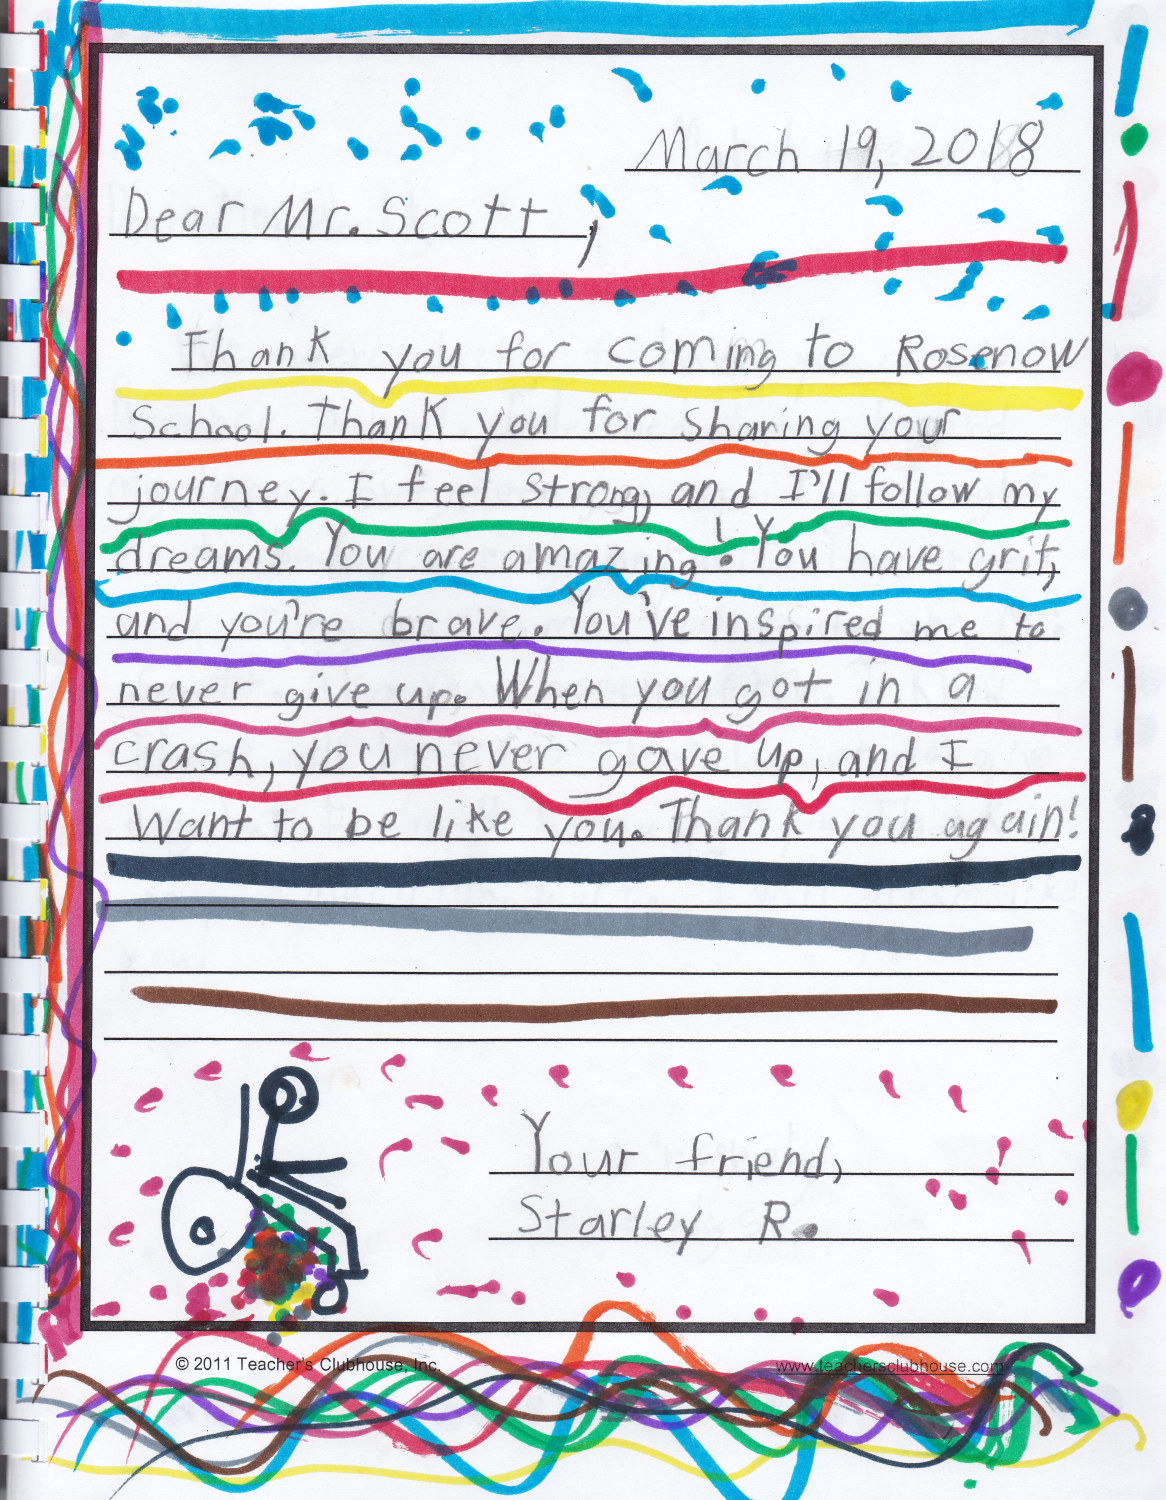 March 19, 2018
Dear Mr. Scott,
Thank you for coming to Rosenow
School. Thank you for sharing your
journey. I feel strong, and I'll follow my
dreams. You are amazing! You have grit,
and you're brave. You've inspired me to
never give up. When you got in a
crash, you never gave up, and I
Want to be like you. Thank you again!
Your friend,
Starley R.
© 2011 Teacher's Clubhouse, Inc. www.teachersclubhouse.com